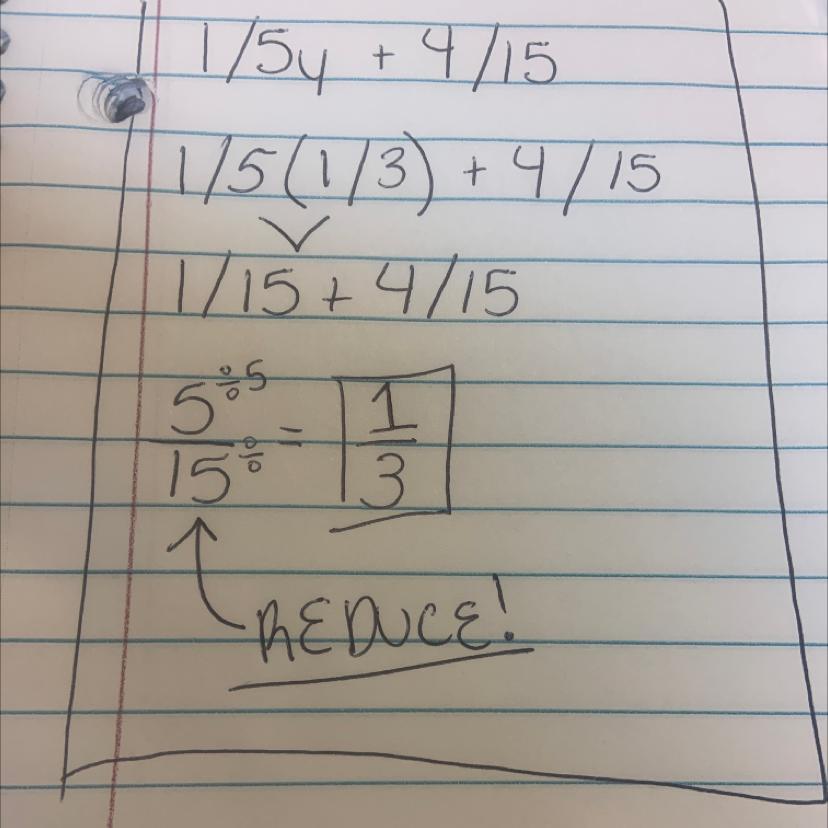 1/5y + 4/15
1/5(1/3) + 4/15
1/15 + 4/15
5÷5
15÷ = 1
3
REDUCE!